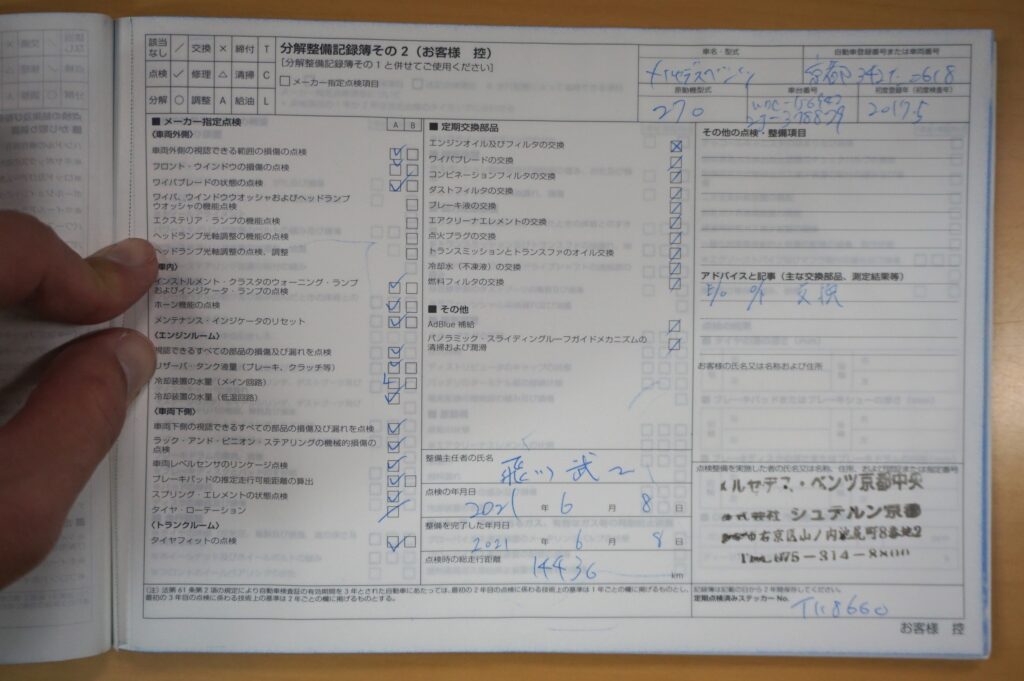 該当なし ／ 交換 × 締付 T
点検 ✓ 修理 △ 清掃 C
分解 ○ 調整 A 給油 L
分解整備記録簿その2（お客様 控）
［分解整備記録簿その1と併せてご使用ください］
□ メーカー指定点検項目
車名・型式
自動車登録番号または車両番号
京都
原動機型式
車台番号
初度登録年（初度検査年）
270
2017.5
■ メーカー指定点検
A B
〈車両外側〉
車両外側の視認できる範囲の損傷の点検
フロント・ウインドウの損傷の点検
ワイパブレードの状態の点検
ワイパ、ウインドウウオッシャおよびヘッドランプ
ウオッシャの機能点検
エクステリア・ランプの機能点検
ヘッドランプ光軸調整の機能の点検
ヘッドランプ光軸調整の点検、調整
〈車内〉
インストルメント・クラスタのウォーニング・ランプ
およびインジケータ・ランプの点検
ホーン機能の点検
メンテナンス・インジケータのリセット
〈エンジンルーム〉
視認できるすべての部品の損傷及び漏れを点検
リザーバ・タンク液量（ブレーキ、クラッチ等）
冷却装置の水量（メイン回路）
冷却装置の水量（低温回路）
〈車両下側〉
車両下側の視認できるすべての部品の損傷及び漏れを点検
ラック・アンド・ピニオン・ステアリングの機械的損傷の
点検
車両レベルセンサのリンケージ点検
ブレーキパッドの推定走行可能距離の算出
スプリング・エレメントの状態点検
タイヤ・ローテーション
〈トランクルーム〉
タイヤフィットの点検
■ 定期交換部品
エンジンオイル及びフィルタの交換
ワイパブレードの交換
コンビネーションフィルタの交換
ダストフィルタの交換
ブレーキ液の交換
エアクリーナエレメントの交換
点火プラグの交換
トランスミッションとトランスファのオイル交換
冷却水（不凍液）の交換
燃料フィルタの交換
■ その他
AdBlue 補給
パノラミック・スライディングルーフガイドメカニズムの
清掃および潤滑
整備主任者の氏名
点検の年月日
2021 年 6 月 8 日
整備を完了した年月日
2021 年 6 月 8 日
点検時の総走行距離
14436 km
その他の点検・整備項目
アドバイスと記事（主な交換部品、測定結果等）
交換
お客様の氏名又は名称および住所
点検整備を実施した者の氏名又は名称、住所、および認証または指定番号
メルセデス・ベンツ京都中央
株式会社 シュテルン京都
市右京区山ノ内池尻町8番地2
075-314-8800
（注）法第61条第2項の規定により自動車検査証の有効期間を3年とされた自動車にあたっては、最初の2年目の点検に係わる技術上の基準は1年ごとの欄に掲げるものとし、
最初の3年目の点検に係わる技術上の基準は2年ごとの欄に掲げるものとする。
記録簿は記載の日から2年間保存してください。
定期点検済みステッカー No.
お客様 控